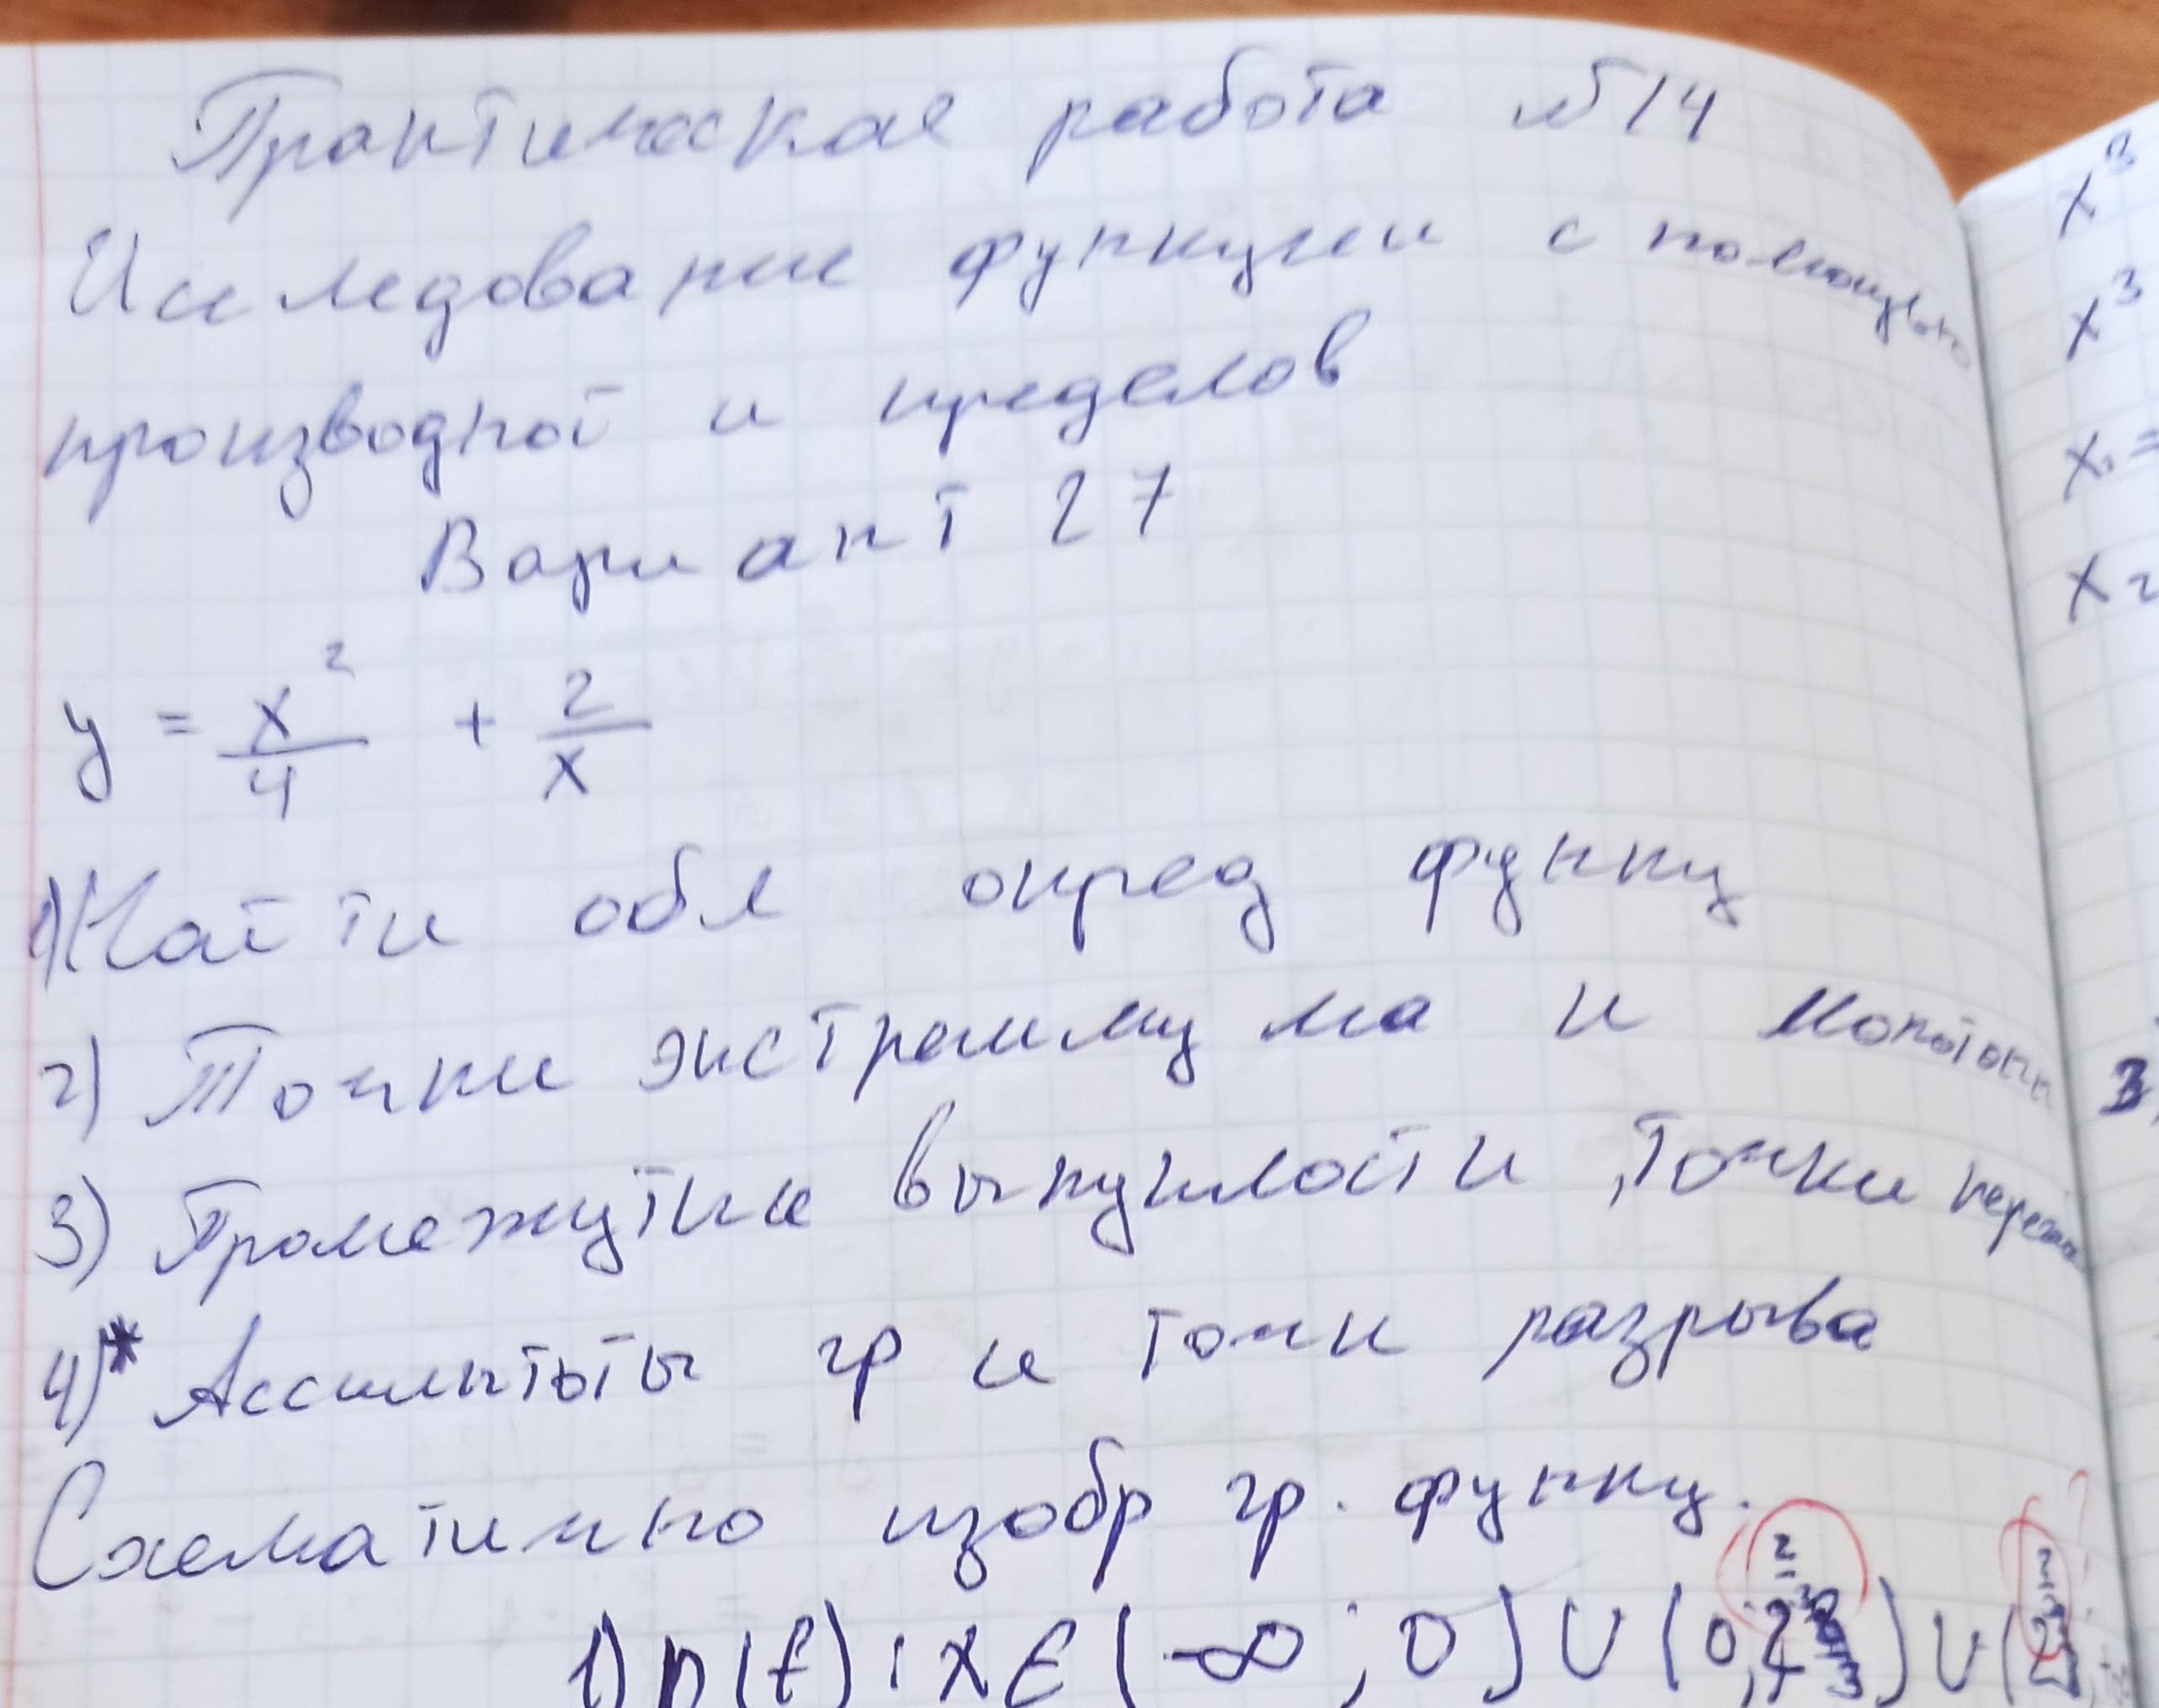 Практическая работа №14
Исследование функции с помощью
производной и пределов
Вариант 27
y = x²/4 + 2/x
1) Найти обл опред функц
2) Точки экстреммума и монотонн
3) Промежутки выпуклости, точки
4)* Ассимптоты гр и точк разрыва
Схематично изобр гр. функц.
1) D(f): x ∈ (-∞; 0) ∪ (0;
x³
x³
x₁ =
x₂
3